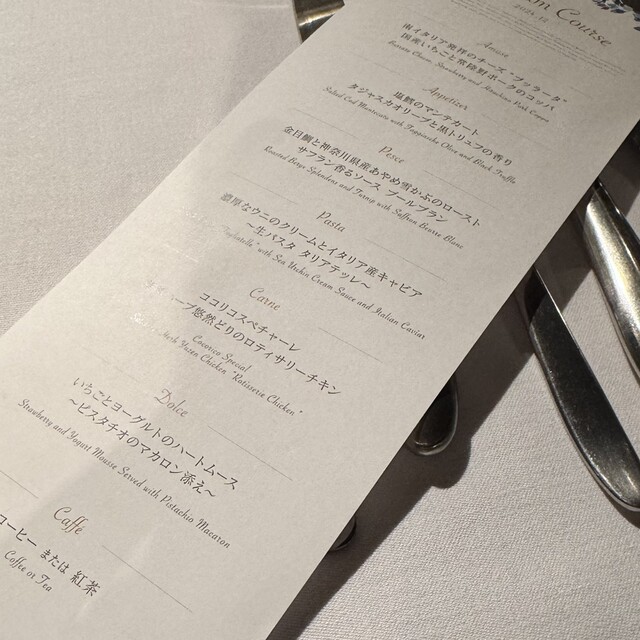 Course
Amuse
南イタリア発祥のチーズ "ブッラータ"
国産いちごと常陸野ポークのコッパ
Burrata Cheese, Strawberry and Hitachino Pork Coppa
Appetizer
塩鱈のマンテカート
タジャスカオリーブと黒トリュフの香り
Salted Cod Mantecato with Taggiasca Olive and Black Truffle
Pesce
金目鯛と神奈川県産あやめ雪かぶのロースト
サフラン香るソース ブールブラン
Roasted Beryx Splendens and Turnip with Saffron Beurre Blanc
Pasta
濃厚なウニのクリームとイタリア産キャビア
～生パスタ タリアテッレ～
with Sea Urchin Cream Sauce and Italian Caviar
Carne
ココリコスペチャーレ
ハーブ悠然どりのロティサリーチキン
Cocorico Special
Herb Yuzen Chicken "Rotisserie Chicken"
Dolce
いちごとヨーグルトのハートムース
～ピスタチオのマカロン添え～
Strawberry and Yogurt Mousse Served with Pistachio Macaron
Caffé
コーヒー または 紅茶
Coffee or Tea